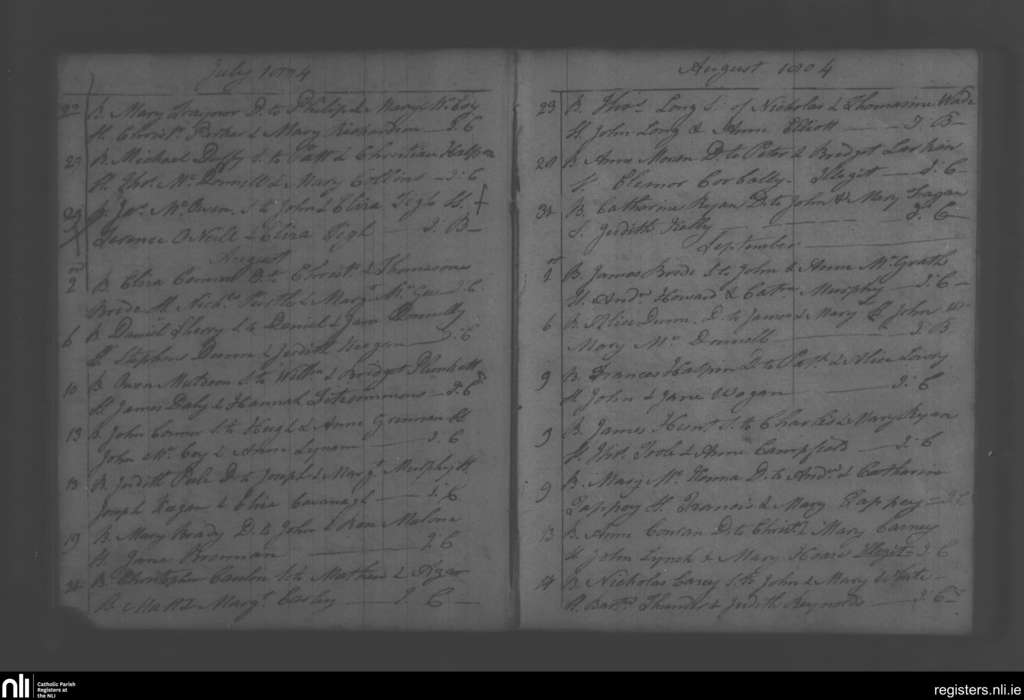 July 1804
22 B. Mary Traynor D. to Philip & Mary McCoy
St. Christr. Parker & Mary Richardson J. C
29 B. Michael Duffy S. to Patt & Christian Halpin
St. Thos. McDonnell & Mary Collins J. C
29 B. Jas. McOwen S. to John & Eliza Tigh St.
Terence O Neill & Eliza Tigh J. B
August
2nd B. Eliza Connor D. to Christr. & Thomasine
Bride St. Nichs. Tuttle & Margt. McGee J. C
6 B. Daniel Sherry S. to Daniel & Jane Donnelly
St. Stephen Dunn & Judith Keegan J. C
10 B. Owen Matson S. to Willm. & Bridget Plunkett
St. James Daly & Hannah Fitzsimmons J. C
13 B. John Connor S. to Hugh & Anne Grennan St
John McCoy & Anne Lynam J. C
13 B. Judith Pale D. to Joseph & Margt. Murphy St
Joseph Fagan & Eliza Cavanagh J. C
19 B. Mary Brady D. to John & Malone
St. Jane Brennan J. C
B. Christopher S. to Mathew &
St. Matt & Margt. J. C
August 1804
23 B. Thos. Long S. of Nicholas & Thomasine Wade
St. John Long & Anne Elliott J. B
28 B. Anne Moran D. to Peter & Bridget Larkin
S. Elenor Corbally Illegit J. C
31 B. Catharine Ryan D. to John & Mary Fagan
S. Judith Kelly J. C
September
1 B. James Brode S. to John & Anne McGrath
St. Andw. Howard & Cathn. Murphy J. C
6 B. Alice Dunn D. to James & Mary St. John &
Mary McDonnell J. B
9 B. Frances Halpin D. to Patk. & Alice Lowry
St. John & Jane Wogan J. C
9 B. James Hunt S. to Charles & Mary Ryan
St. Thos. Toole & Anne Campford J. C
9 B. Mary McKenna D. to Andw. & Catharine
Tappey St. Francis & Mary Tappey J. C
13 B. Anne Conran D. to Christr. & Mary Carney
St. John Lynch & Mary Illegit J. C
14 B. Nicholas Carey S. to John & Mary
St. Barthw. Thunder & Judith Reynolds J. C
nli
Catholic Parish
Registers at
the NLI
registers.nli.ie